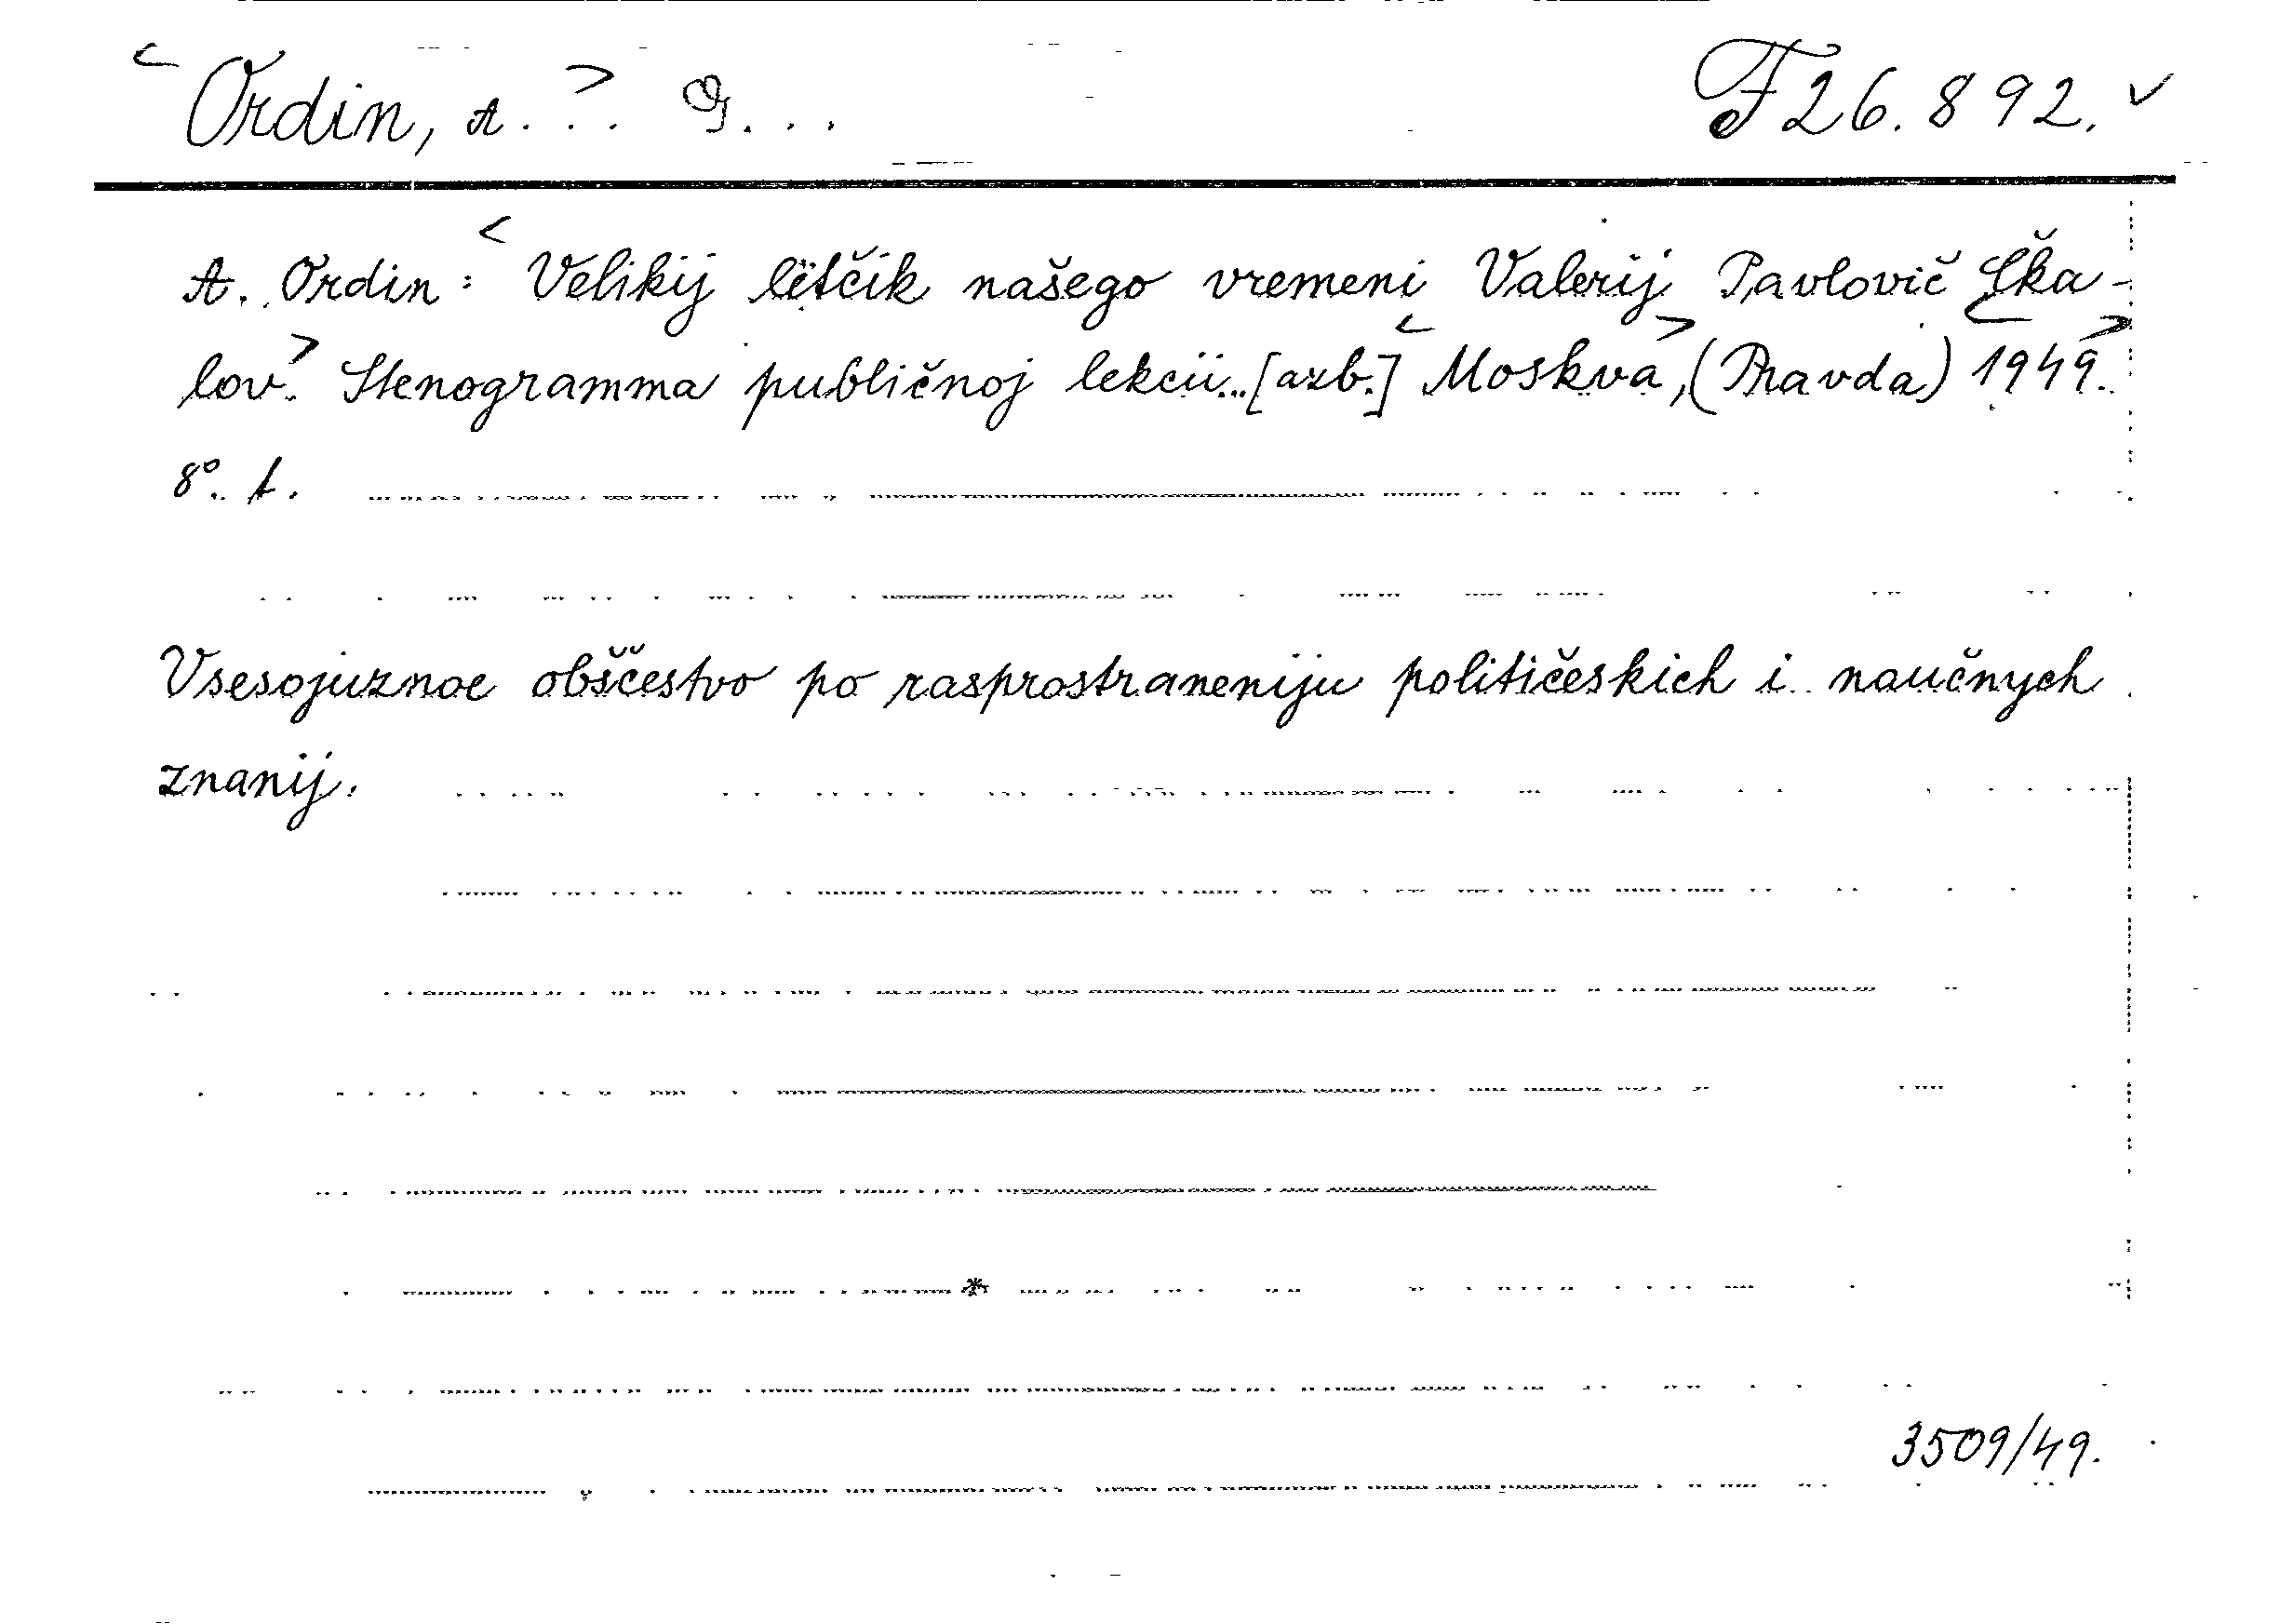 <Ordin, A...> J...
F 26.892.
A. Ordin: <Velikij lëtčik našego vremeni Valerij Pavlovič Čka-
lov.> Stenogramma publičnoj lekcii...[azb.] <Moskva>, (Pravda) 1949.>
8°. 1.
Vsesojuznoe obščestvo po rasprostraneniju političeskich i naučnych
znanij.
3509/49.